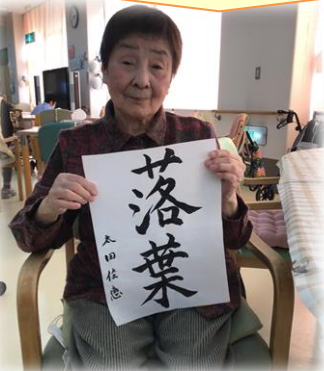 落葉
太田信恵